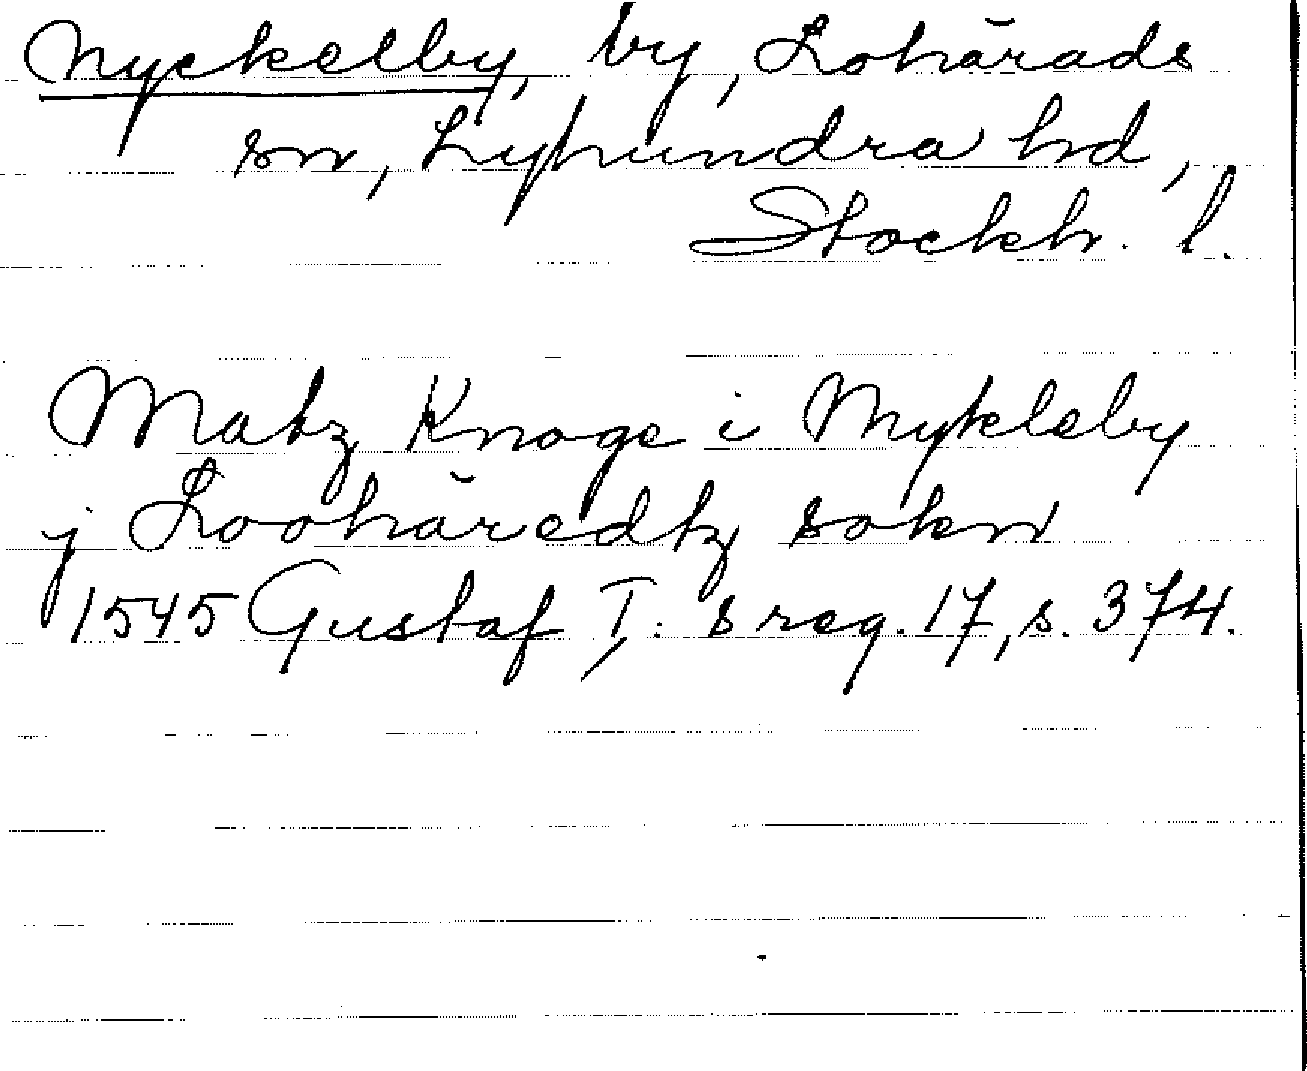 Nyckelby, by, Lohärads
sn, Lyhundra hd,
Stockh. l.
Matz Knoge i Mykleby
j Loohäredtz sokn
1545 Gustaf I:s reg. 17, s. 374.